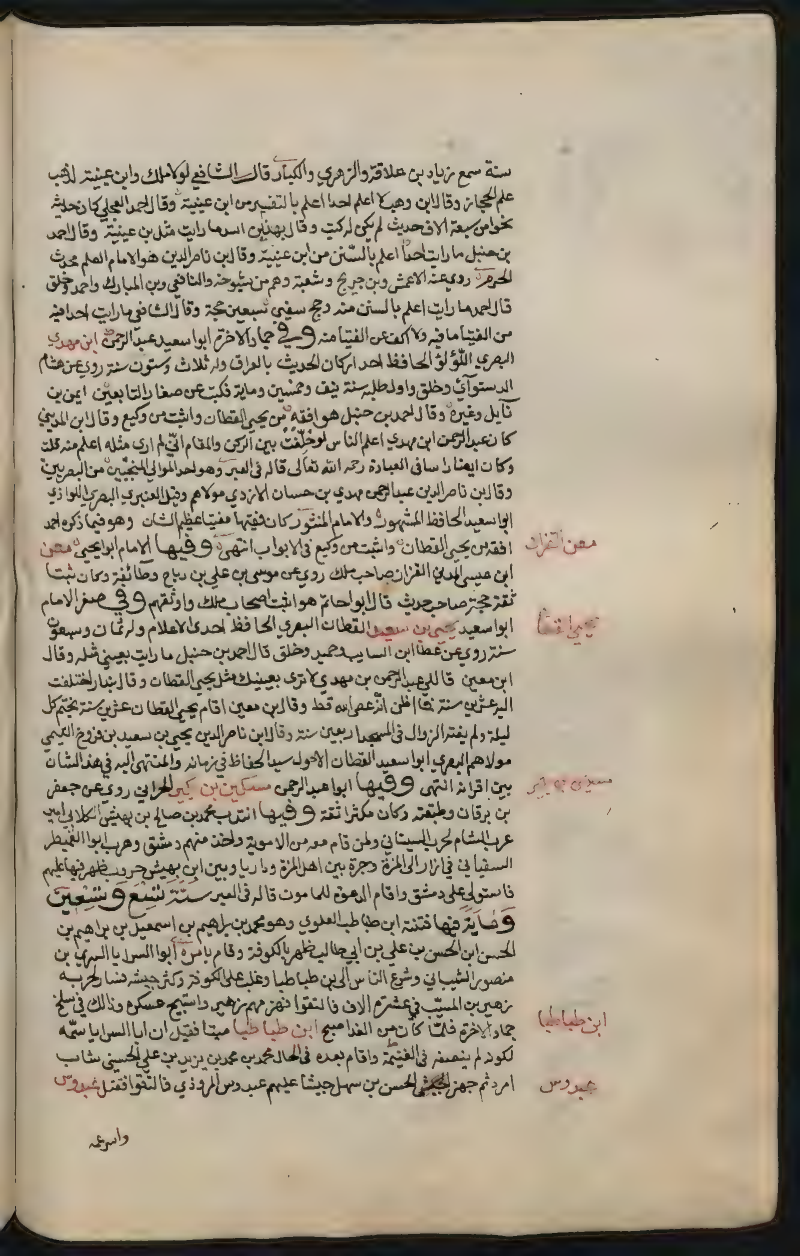 سنة سمع زياد بن علاقة والزهري والكبار قال الشافعي لولا ملك وابن عيينة لذهب
علم الحجاز وقال ابن وهب لا اعلم احدا اعلم بالتفسير من ابن عيينة وقال احمد العجلي كان حديثه
نحوا من سبعة الاف حديث لم يكن له كتب وقال بهز بن اسد ما رايت مثل بن عيينة وقال احمد
بن حنبل ما رايت احدا اعلم بالسنن من ابن عيينة وقال بن ناصر الدين هو الامام العلم محدث
الحرم روي عنه الاعمش وبن جريج وشعبة وهم من شيوخه والشافعي وبن المبارك واحمد وخلق
قال احمد ما رايت اعلم بالسنن منه وحج سفين سبعين حجة وقال الشافعي ما رايت احدا فيه
من الفتيا ما فيه ولا اكف عن الفتيا منه وفي جماد الاخرة ابو سعيد عبد الرحمن ابن مهدي
البصري اللؤلؤي الحافظ احد اركان الحديث بالعراق وله ثلاث وستون سنة روي عن هشام
الدستوآئي وخلق واول طلبه سنة نيف وخمسين وماية فكتب عن صغار التابعين ايمن بن
نابل وغيره وقال احمد بن حنبل هو افقه من يحيى القطان واثبت من وكيع وقال ابن المديني
كان عبد الرحمن ابن مهدي اعلم الناس لو حلفت بين الركن والمقام اني لم ارى مثله اعلم منه قلت
وكان ايضا راسا في العبادة رحمه الله تعالى قاله في العبر وهو احد الموالي المنجبين من البصريين
وقال بن ناصر الدين عبد الرحمن مهدي بن حسان الازدي مولاهم وقيل العنبري البصري اللولؤي
ابو سعيد الحافظ المشهور والامام المنثور كان فقيها مفتيا عظيم الشان وهو فيما ذكره احمد
افقه من يحيى القطان واثبت من وكيع في الابواب انتهى وفيها الامام ابو يحيى معن
معن القزاز
ابن عيسى المدني القزاز صاحب ملك روي عن موسى بن علي بن رباح وطائفة وكان ثبتا
ثقة حجة صاحب حديث قال ابو حاتم هو اثبت اصحاب ملك واوثقهم وفي صفر الامام
ابو سعيد يحيى بن سعيد القطان البصري الحافظ احدى الاعلام وله ثمان وسبعون
يحيى القطان
سنة روي عن عطا ابن السايب وحميد وخلق قال احمد بن حنبل ما رايت بعيني مثله وقال
ابن معين قال لي عبد الرحمن بن مهدي لا ترى بعينيك مثل يحيى القطان وقال بندار اختلفت
اليه عشرين سنة فما اظن انه عصى الله قط وقال بن معين اقام يحيى القطان عشرين سنة يختم كل
ليلة ولم يفته الزوال في المسجد اربعين سنة وقال ابن ناصر الدين يحيى بن سعيد بن فروخ التميمي
مولاهم البصري ابو سعيد القطان الاحول سيد الحفاظ في زمانه والمنتهى اليه في هذا الشان
بين اقرانه انتهى وفيها ابو عبد الرحمن مسكين بن بكير الحراني روي عن جعفر
مسكين بن بكير
بن برقان وطبقته وكان مكثرا ثقة وفيها انتدب محمد بن صالح بن بيهس الكلابي امير
عرب الشام لحرب السفياني ولمن قام معه من الاموية واخذ منهم دمشق وهرب ابو العميطر
السفياني في ازار الى المزة وجرة بين اهل المزة وداريا وبين ابن بيهس حروب ظهر فيها عليهم
فاستولى على دمشق واقام الدعوة للمامون قاله في العبر سنة تسع وتسعين
وماية فيها فتنة ابن طباطبا العلوي وهو محمد بن ابراهيم بن اسمعيل بن ابراهيم بن
الحسن ابن الحسن بن علي بن ابي طالب ظهر بالكوفة وقام بامره ابو السرايا السري بن
منصور الشيباني وشرع الناس الى بن طباطبا وغلب على الكوفة وكثر جيشه فسار لحربه
زهير بن المسيب في عشرة الاف فالتقوا فهزم زهير واستبيح عسكره وذالك في سلخ
جماد الاخرة فلما كان من الغد اصبح ابن طباطبا ميتا فقيل ان ابا السرايا سمه
ابن طباطبا
لكونه لم ينصفه في الغنيمة واقام بعده في الحال محمد بن محمد بن يزيد بن علي الحسيني شاب
امرد ثم جهز الحسن بن سهل جيشا عليهم عبدوس المروذي فالتقوا فقتل عبدوس
عبدوس
واسر عمه